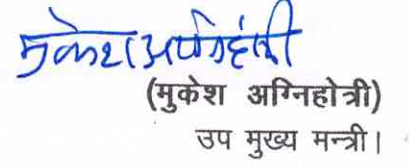 मुकेश अग्निहोत्री
(मुकेश अग्निहोत्री)
उप मुख्य मन्त्री।